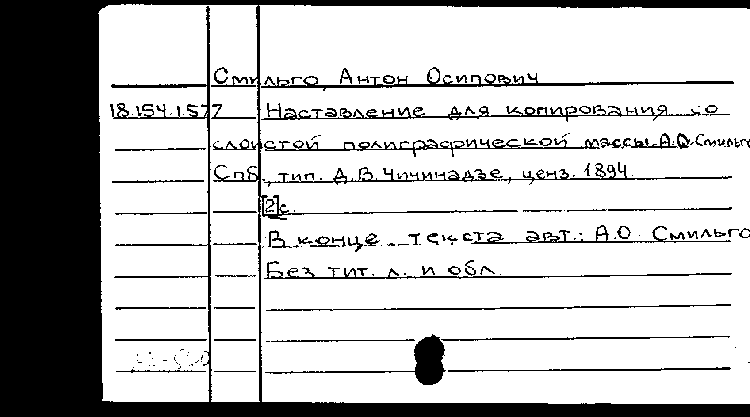 Смильго, Антон Осипович
18.154.1.577 Наставление для копирования со
слоистой полиграфической массы А.О. Смильго
Спб., тип. Д.В. Чичинадзе, ценз. 1894.
[2]с.
В конце текста авт.: А.О. Смильго
Без тит. л. и обл.